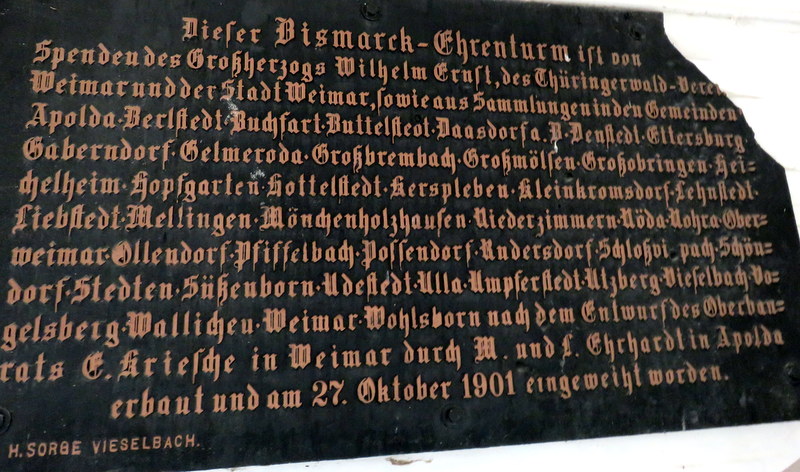 Dieser Bismarck-Ehrenturm ist von
Spenden des Großherzogs Wilhelm Ernst, des Thüringerwald-Verei
Weimar und der Stadt Weimar, sowie aus Sammlungen in den Gemeinden
Apolda·Berlstedt·Buchfart·Buttelstedt·Daasdorf a. B·Denstedt·Ettersburg
Gaberndorf·Gelmeroda·Großbrembach·Großmölsen·Großobringen·Hei=
chelheim·Hopfgarten·Hottelstedt·Kerspleben·Kleinkromsdorf·Lehnstedt·
Liebstedt·Mellingen·Mönchenholzhausen·Niederzimmern·Nöda·Nohra·Ober=
weimar·Ollendorf·Pfiffelbach·Possendorf·Rndersdorf·Schloßvi pach·Schön=
dorf·Stedten·Süßenborn·Udestedt·Ulla·Umpferstedt·Ulzberg·Vieselbach·Vo=
gelsberg·Wallichen·Weimar·Wohlsborn nach dem Entwurf des Oberbau=
rats E. Kriesche in Weimar durch M. und L. Ehrhardt in Apolda
erbaut und am 27. Oktober 1901 eingeweiht worden.
H. SORGE VIESELBACH.